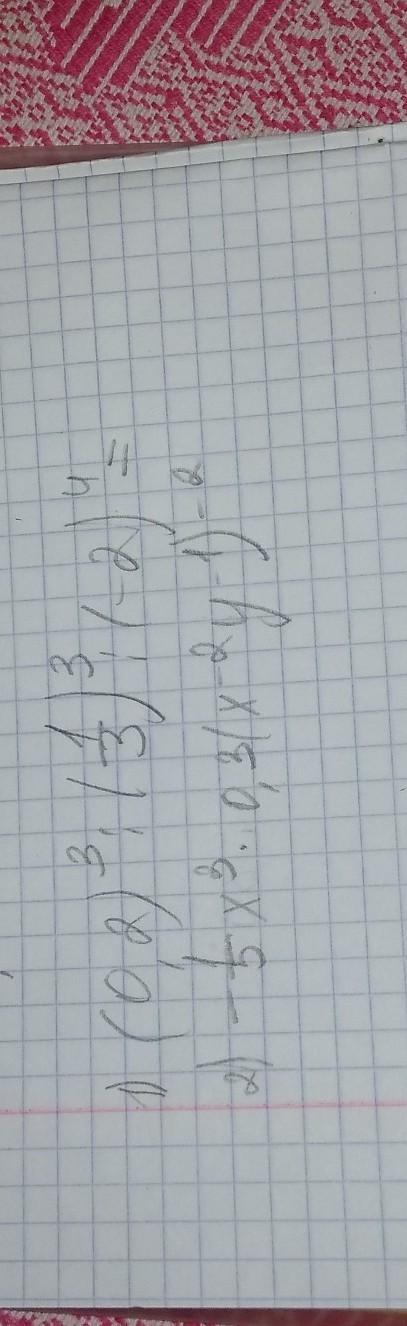 1) (0,2)³ : (1/3)³ : (-2)⁴ =
2) -1/5 x³ · 0,3(x⁻²y-1)⁻²